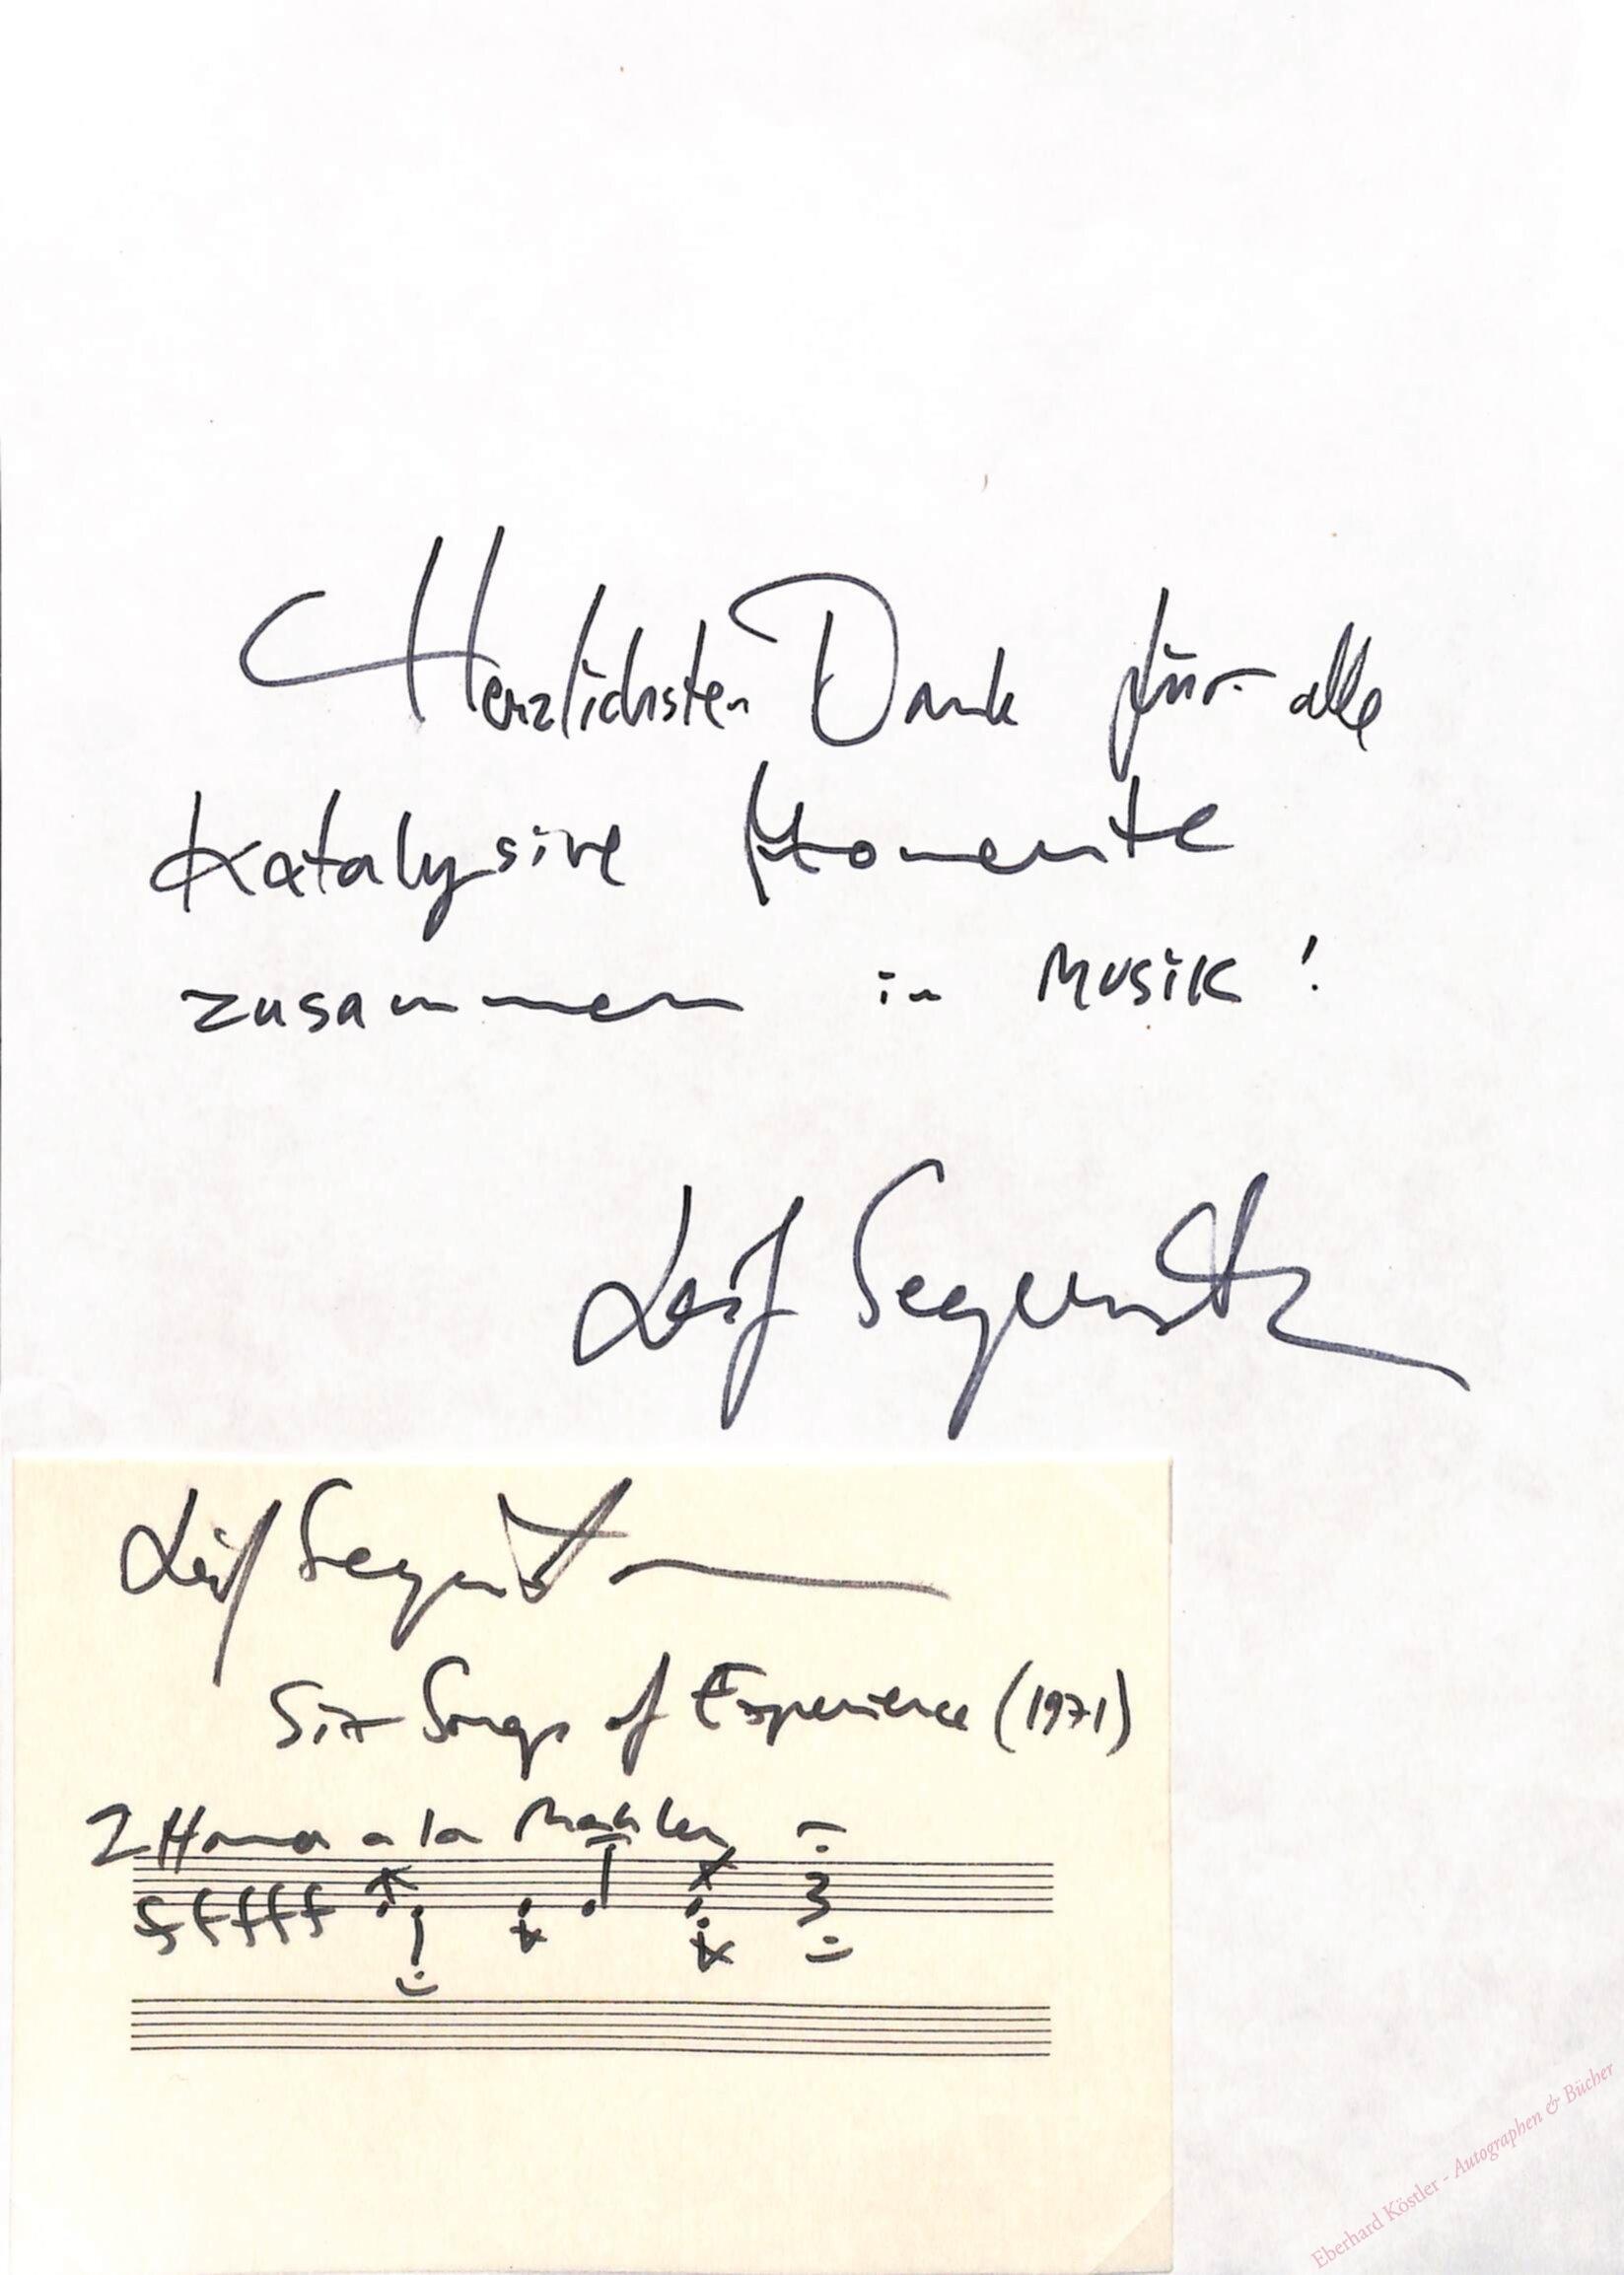 Herzlichsten Dank für alle
Katalysive Momente
zusammen in Musik!
Leif Segerstam
Leif Segerstam
Six Songs of Experience (1971)
2 a la Mahler
sfffff
Eberhard Köstler - Autographen & Bücher